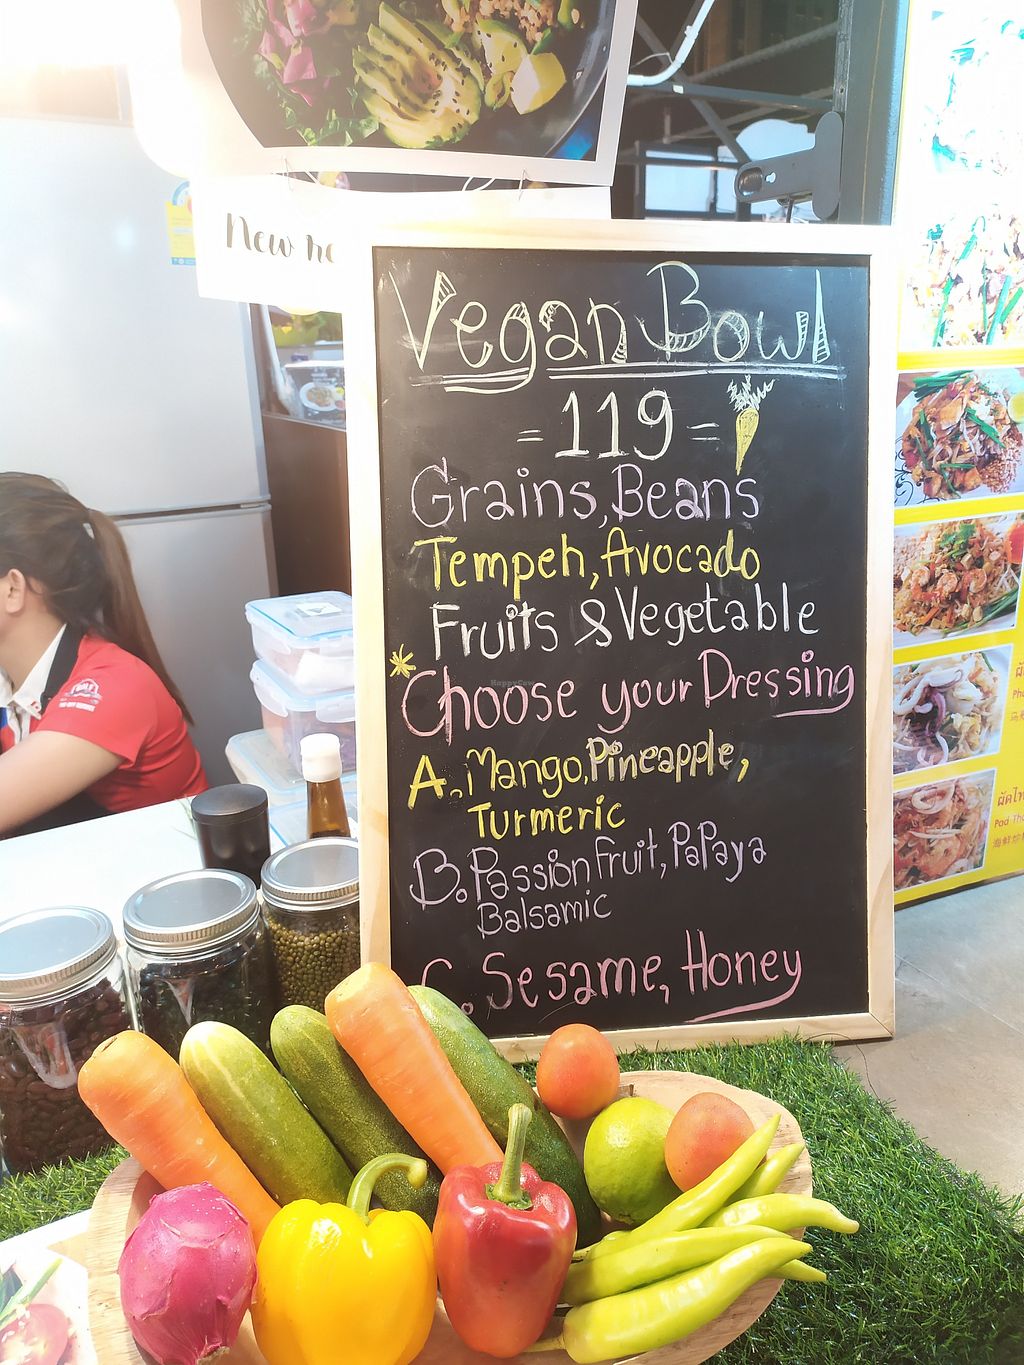 New
Vegan Bowl
= 119 =
Grains, Beans
Tempeh, Avocado
Fruits & Vegetable
* Choose your Dressing
A. Mango, Pineapple,
Turmeric
B. Passion fruit, Papaya
Balsamic
C. Sesame, Honey
HappyCow
ผัดไท
Pad Tha